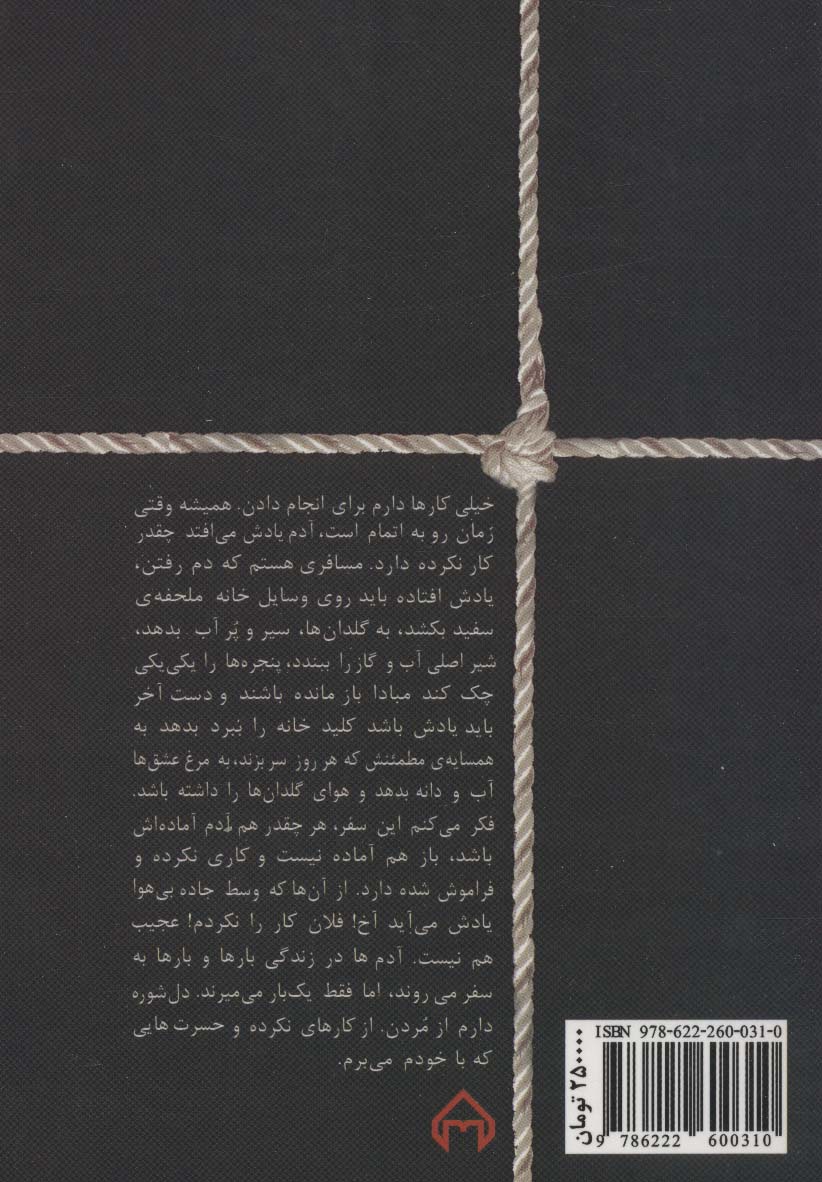 خیلی کارها دارم برای انجام دادن. همیشه وقتی
زمان رو به اتمام است، آدم یادش می‌افتد چقدر
کار نکرده دارد. مسافری هستم که دم رفتن،
یادش افتاده باید روی وسایل خانه ملحفه‌ی
سفید بکشد، به گلدان‌ها، سیر و پُر آب بدهد،
شیر اصلی آب و گاز را ببندد، پنجره‌ها را یکی‌یکی
چک کند مبادا باز مانده باشند و دست آخر
باید یادش باشد کلید خانه را نبرد بدهد به
همسایه‌ی مطمئنش که هر روز سر بزند، به مرغ عشق‌ها
آب و دانه بدهد و هوای گلدان‌ها را داشته باشد.
فکر می‌کنم این سفر، هر چقدر هم آدم آماده‌اش
باشد، باز هم آماده نیست و کاری نکرده و
فراموش شده دارد. از آن‌ها که وسط جاده بی‌هوا
یادش می‌آید آخ! فلان کار را نکردم! عجیب
هم نیست. آدم ها در زندگی بارها و بارها به
سفر می روند، اما فقط یک‌بار می‌میرند. دل‌شوره
دارم از مُردن. از کارهای نکرده و حسرت هایی
که با خودم می‌برم.
ISBN 978-622-260-031-0
۲۵۰۰۰۰ تومان
9 786222 600310